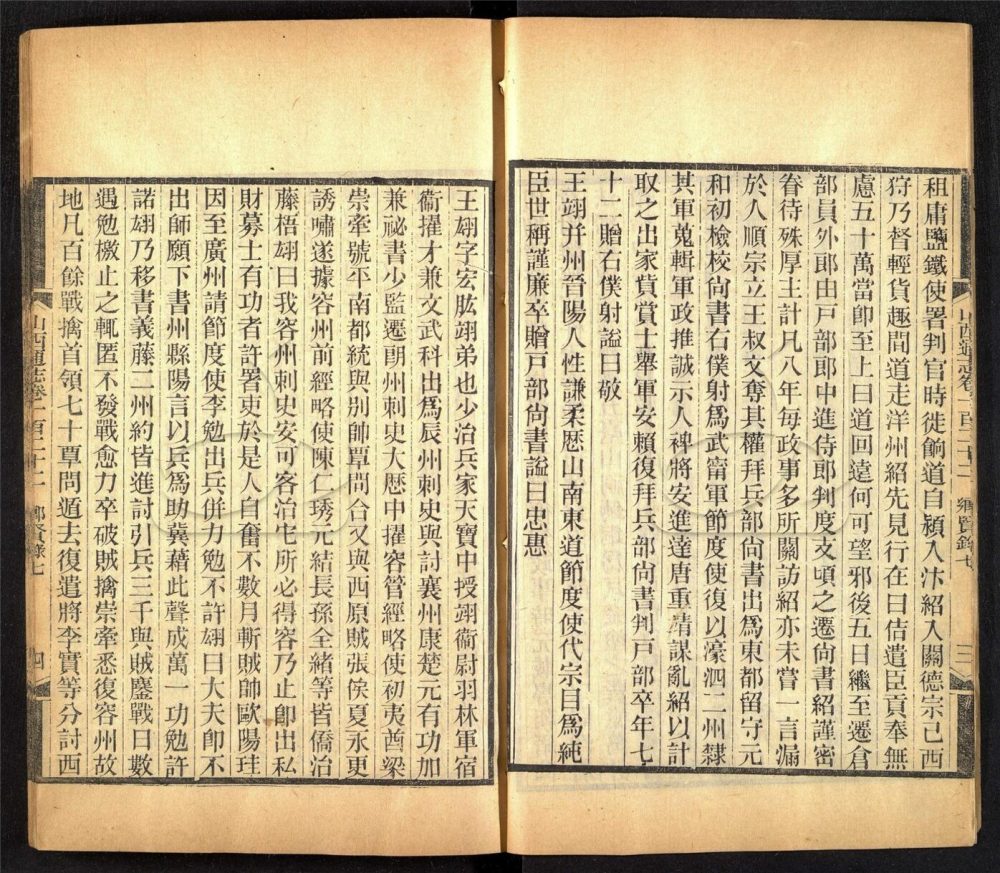 租庸鹽鐵使署判官時徙餉道自潁入汴紹入關德宗已西
狩乃督輕貨趣間道走洋州紹先見行在曰佶遣臣貢奉無
慮五十萬當卽至上曰道回遠何可望邪後五日繼至遷倉
部員外郎由戸部郎中進侍郎判度支頃之遷尚書紹謹密
眷待殊厚主計凡八年每政事多所關訪紹亦未嘗一言漏
於人順宗立王叔文奪其權拜兵部尚書出爲東都留守元
和初檢校尚書右僕射爲武甯軍節度使復以濠泗二州隸
其軍蒐輯軍政推誠示人裨將安進達唐重靖謀亂紹以計
取之出家貲賞士舉軍安賴復拜兵部尚書判戸部卒年七
十二贈右僕射謚曰敬
王翊并州晉陽人性謙柔歷山南東道節度使代宗目爲純
臣世稱謹廉卒贈戸部尚書謚曰忠惠
山西通志卷一百二十二 鄉賢錄七 三
王翃字宏肱翊弟也少治兵家天寶中授翊衞尉羽林軍宿
衞擢才兼文武科出爲辰州刺史與討襄州康楚元有功加
兼祕書少監遷朗州刺史大歷中擢容管經略使初夷酋梁
崇牽號平南都統與別帥覃問合又與西原賊張侯夏永更
誘嘯遂據容州前經略使陳仁琇元結長孫全緒等皆僑治
藤梧翃曰我容州刺史安可客治它所必得容乃止卽出私
財募士有功者許署吏於是人自奮不數月斬賊帥歐陽珪
因至廣州請節度使李勉出兵併力勉不許翃曰大夫卽不
出師願下書州縣陽言以兵爲助冀藉此聲成萬一功勉許
諾翃乃移書義藤二州約皆進討引兵三千與賊鏖戰日數
遇勉檄止之輒匿不發戰愈力卒破賊擒崇牽悉復容州故
地凡百餘戰擒首領七十覃問遁去復遣將李實等分討西
山西通志卷一百二十二 鄉賢錄七 四